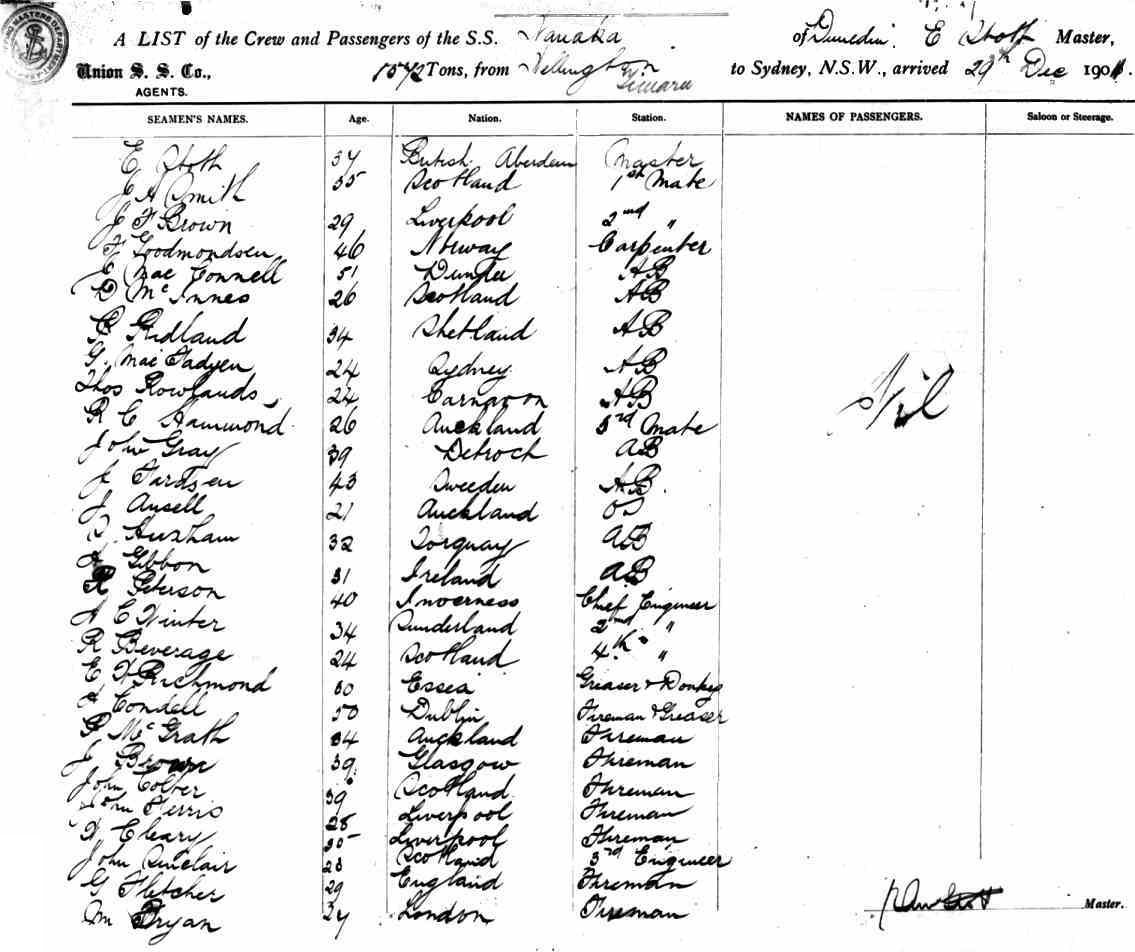 A LIST of the Crew and Passengers of the S.S. Wanaka of Dunedin E Stott Master,
Union S. S. Co., 1572 Tons, from Wellington to Sydney, N.S.W., arrived 29th Dec 190
Timaru
AGENTS.
SEAMEN'S NAMES. Age. Nation. Station. NAMES OF PASSENGERS. Saloon or Steerage.
E Stott 57 British Aberdeen Master
J H Smith 55 Scotland 1st Mate
J F Brown 29 Liverpool 2nd "
F Goodmondsen 46 Norway Carpenter
E Mac Connell 51 Dundee AB
D Mc Innes 26 Scotland AB
Ridland 34 Shetland AB
G. Mac Fadyen 24 Sydney AB
Thos Rowlands 24 Carnavon AB
Nil
R C Hammond 26 Auckland 3rd Mate
John Gray 39 AB
J 43 Sweeden AB
J Ansell 21 Auckland OS
Huxham 32 Torquay AB
Gibbon 31 Ireland AB
R Peterson 40 Inverness Chief Engineer
A E Winter 34 Sunderland 2nd "
R Beverage 24 Scotland 4th "
E W Richmond 30 Essex Greaser & Donkey
Condell 50 Dublin Fireman & Greaser
P McGrath 34 Auckland Fireman
J Brown 39 Glasgow Fireman
John 39 Scotland Fireman
John Ferris 28 Liverpool Fireman
W Cleary 35 Liverpool Fireman
John Sinclair 28 Scotland 3rd Engineer
G Fletcher 29 England Fireman
Master.
M Bryan 27 London Fireman